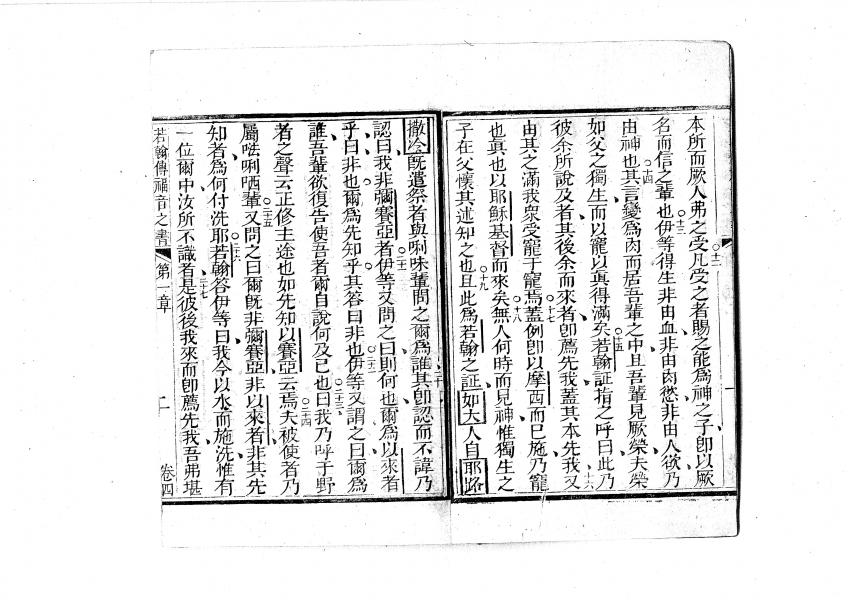 本所而厥人弗之受凡受之者賜之能為神之子卽以厥
名而信之輩也伊等得生非由血非由肉慾非由人欲乃
由神也其言變為肉而居吾輩之中且吾輩見厥榮夫榮
如父之獨生而以寵以真得滿矣若翰証指之呼曰此乃
彼余所說及者其後余而來者卽薦先我蓋其本先我又
由其之滿我衆受寵于寵焉蓋例卽以摩西而已施乃寵
也真也以耶穌基督而來矣無人何時而見神惟獨生之
子在父懷其述知之也且此為若翰之証如大人自耶路
撒冷旣遣祭者與唎味輩問之爾為誰其卽認而不諱乃
認曰我非彌賽亞者伊等又問之曰則何也爾為以來者
乎曰非也爾為先知乎其答曰非也伊等又謂之曰爾為
誰吾輩欲復告使吾者爾自說何及已也曰我乃呼于野
者之聲云正修主途也如先知以賽亞云焉夫被使者乃
屬𠵽唎哂輩又問之曰爾旣非彌賽亞非以來者非其先
知者為何付洗耶若翰答伊等曰我今以水而施洗惟有
一位爾中汝所不識者是彼後我來而卽薦先我吾弗堪
若翰傳福音之書 第一章 二 卷四